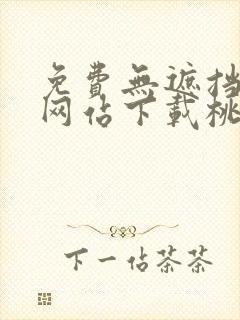 免費無遮挡
网佔下載桃
下一佔茶茶